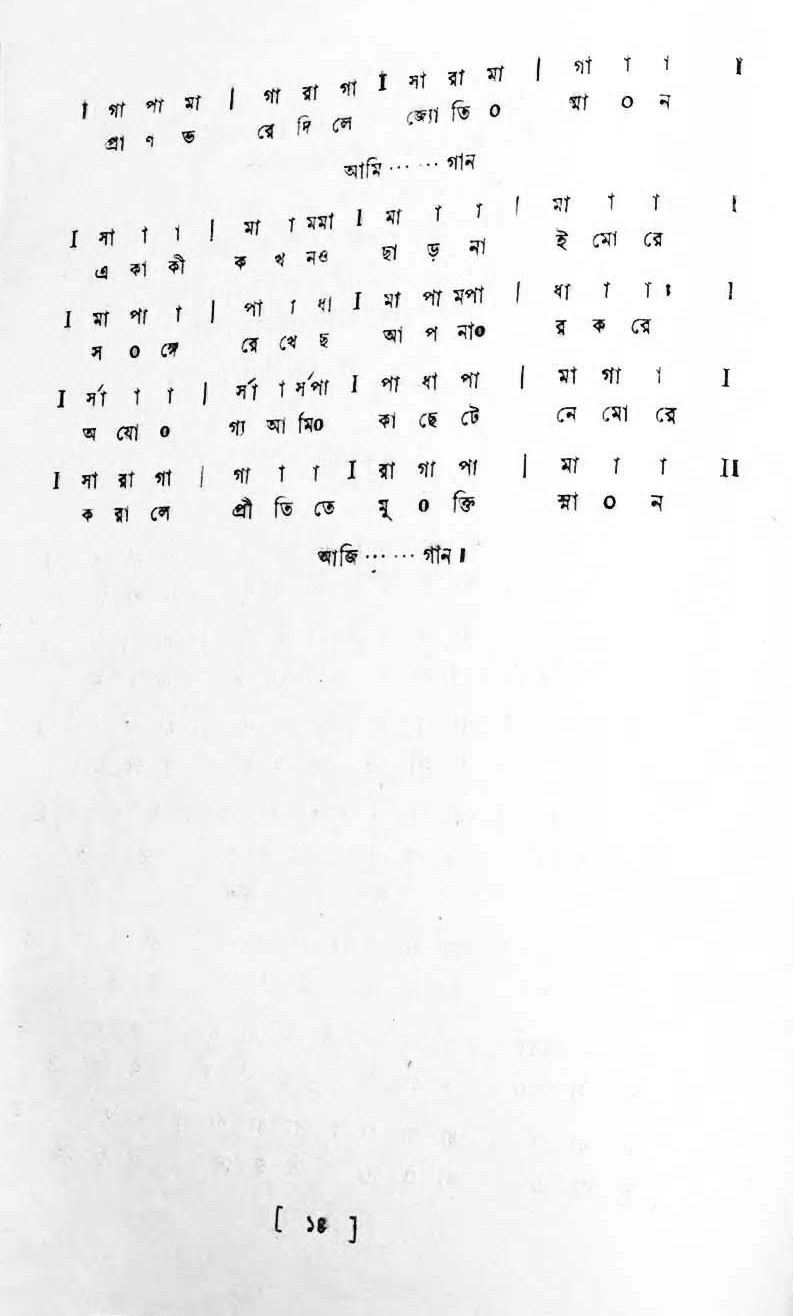 I গা পা মা | গা রা গা I সা রা মা | গা া া I
প্রা ণ ভ রে দি লে জ্যো তি ০ ষ্মা ০ ন
আমি…… গান
I সা া া | মা া মমা I মা া া | মা া া I
এ কা কী ক খ নও ছা ড় না ই মো রে
I মা পা া | পা া ধা I মা পা মপা | ধা া াঃ I
স ০ ঙ্গে রে খে ছ আ প না০ র ক রে
I র্সা া া | র্সা া র্সপা I পা ধা পা | মা গা া I
অ যো ০ গ্য আ মি০ কা ছে টে নে মো রে
I সা রা গা | গা া া I রা গা পা | মা া া II
ক রা লে প্রী তি তে মু ০ ক্তি স্না ০ ন
আজি…… গান।
[ ১৪ ]